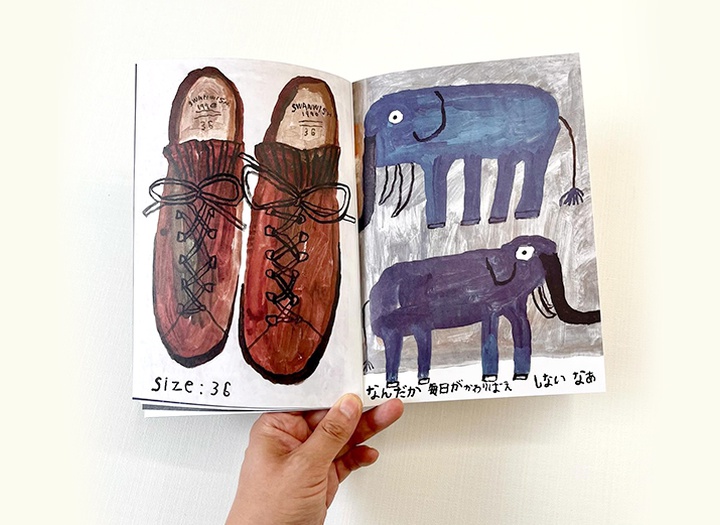 SWANWISH
1990
36
SWANWISH
1990
36
size: 36
なんだか 毎日がかわりばえ しない なぁ